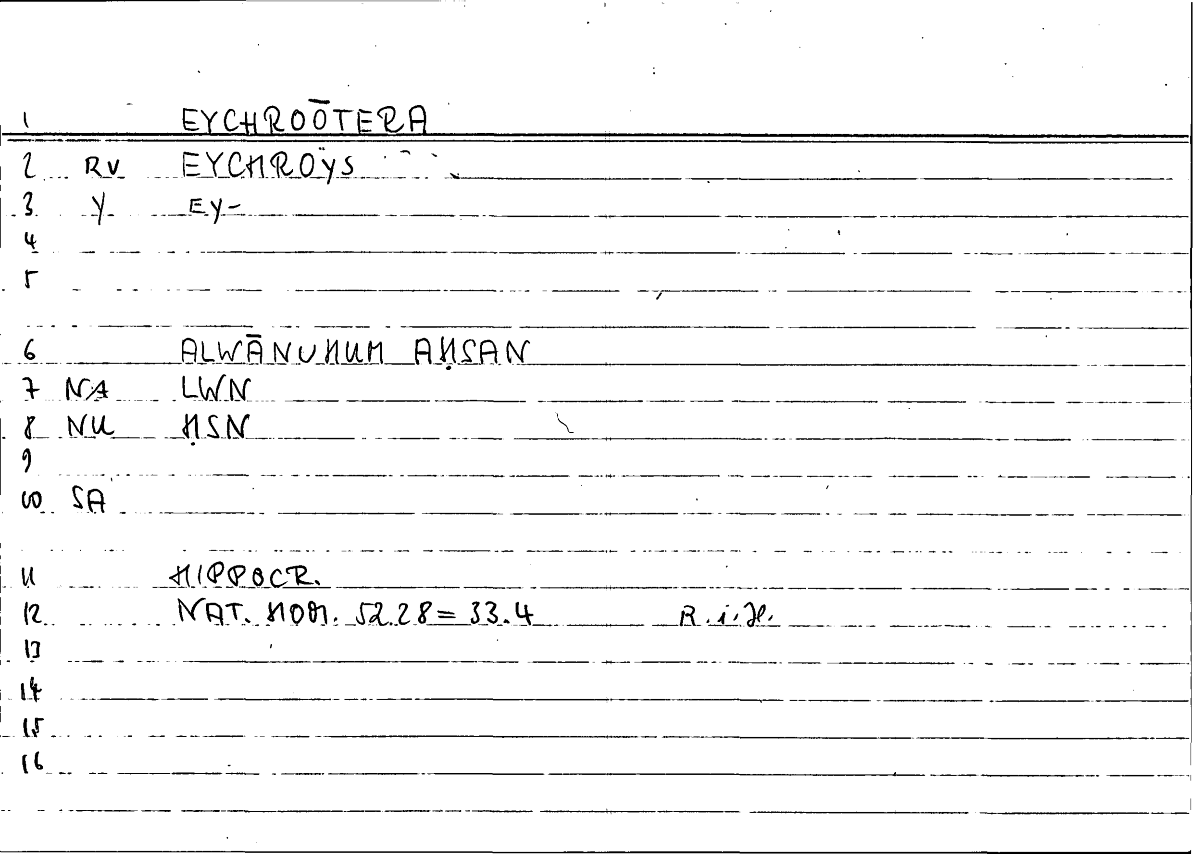 1 EYCHROŌTERA
2 RV EYCHROYS
3 Y EY-
4
5
6 ALWĀNUHUM AḤSAN
7 NA LWN
8 NU ḤSN
9
10 SA
11 HIPPOCR.
12 NAT. HOM. 52.28 = 33.4 R.i.H.
13
14
15
16